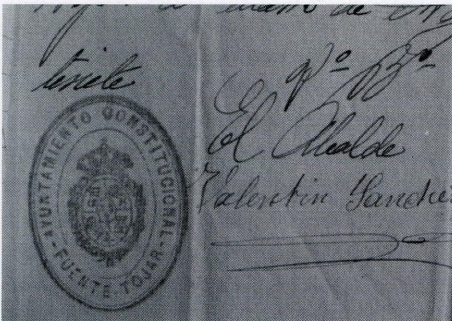 de
siete
Vº Bº
El Alcalde
Valentin Sanchez
AYUNTAMIENTO CONSTITUCIONAL
- FUENTE-TOJAR -